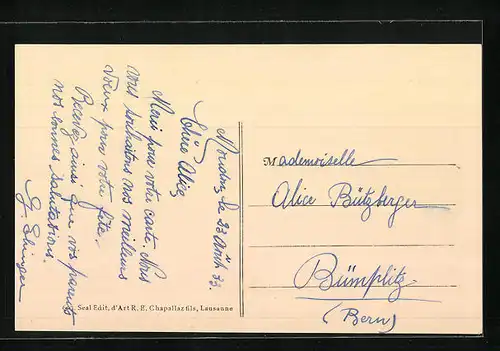 Moudon le 23 Août 33.
Chère Alice
Merci pour votre carte. Nous
vous souhaitons nos meilleurs
vœux pour votre fête.
Recevez ainsi que vos parents
nos bonnes salutations.
Mademoiselle
Alice Bützberger
Bümplitz
(Bern)
Seal Edit. d'Art R. E. Chapallaz fils, Lausanne